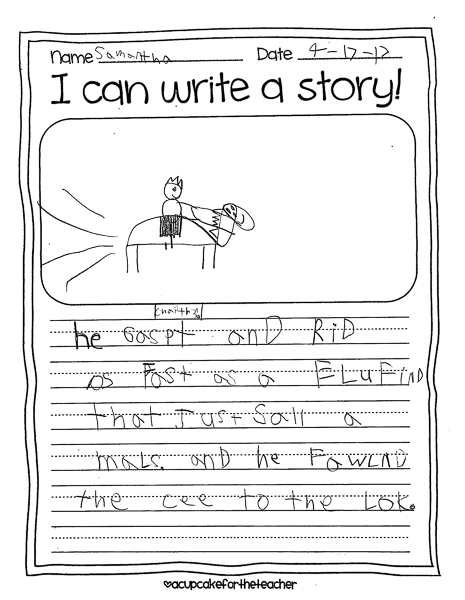 Name Samantha Date 4-17-17
I can write a story!
he Gaspt anD RiD
as Fast as a ELuFiND
that Just Sall a
mals. anD he FawLND
the cee to the Lok.
♥acupcakefortheteacher